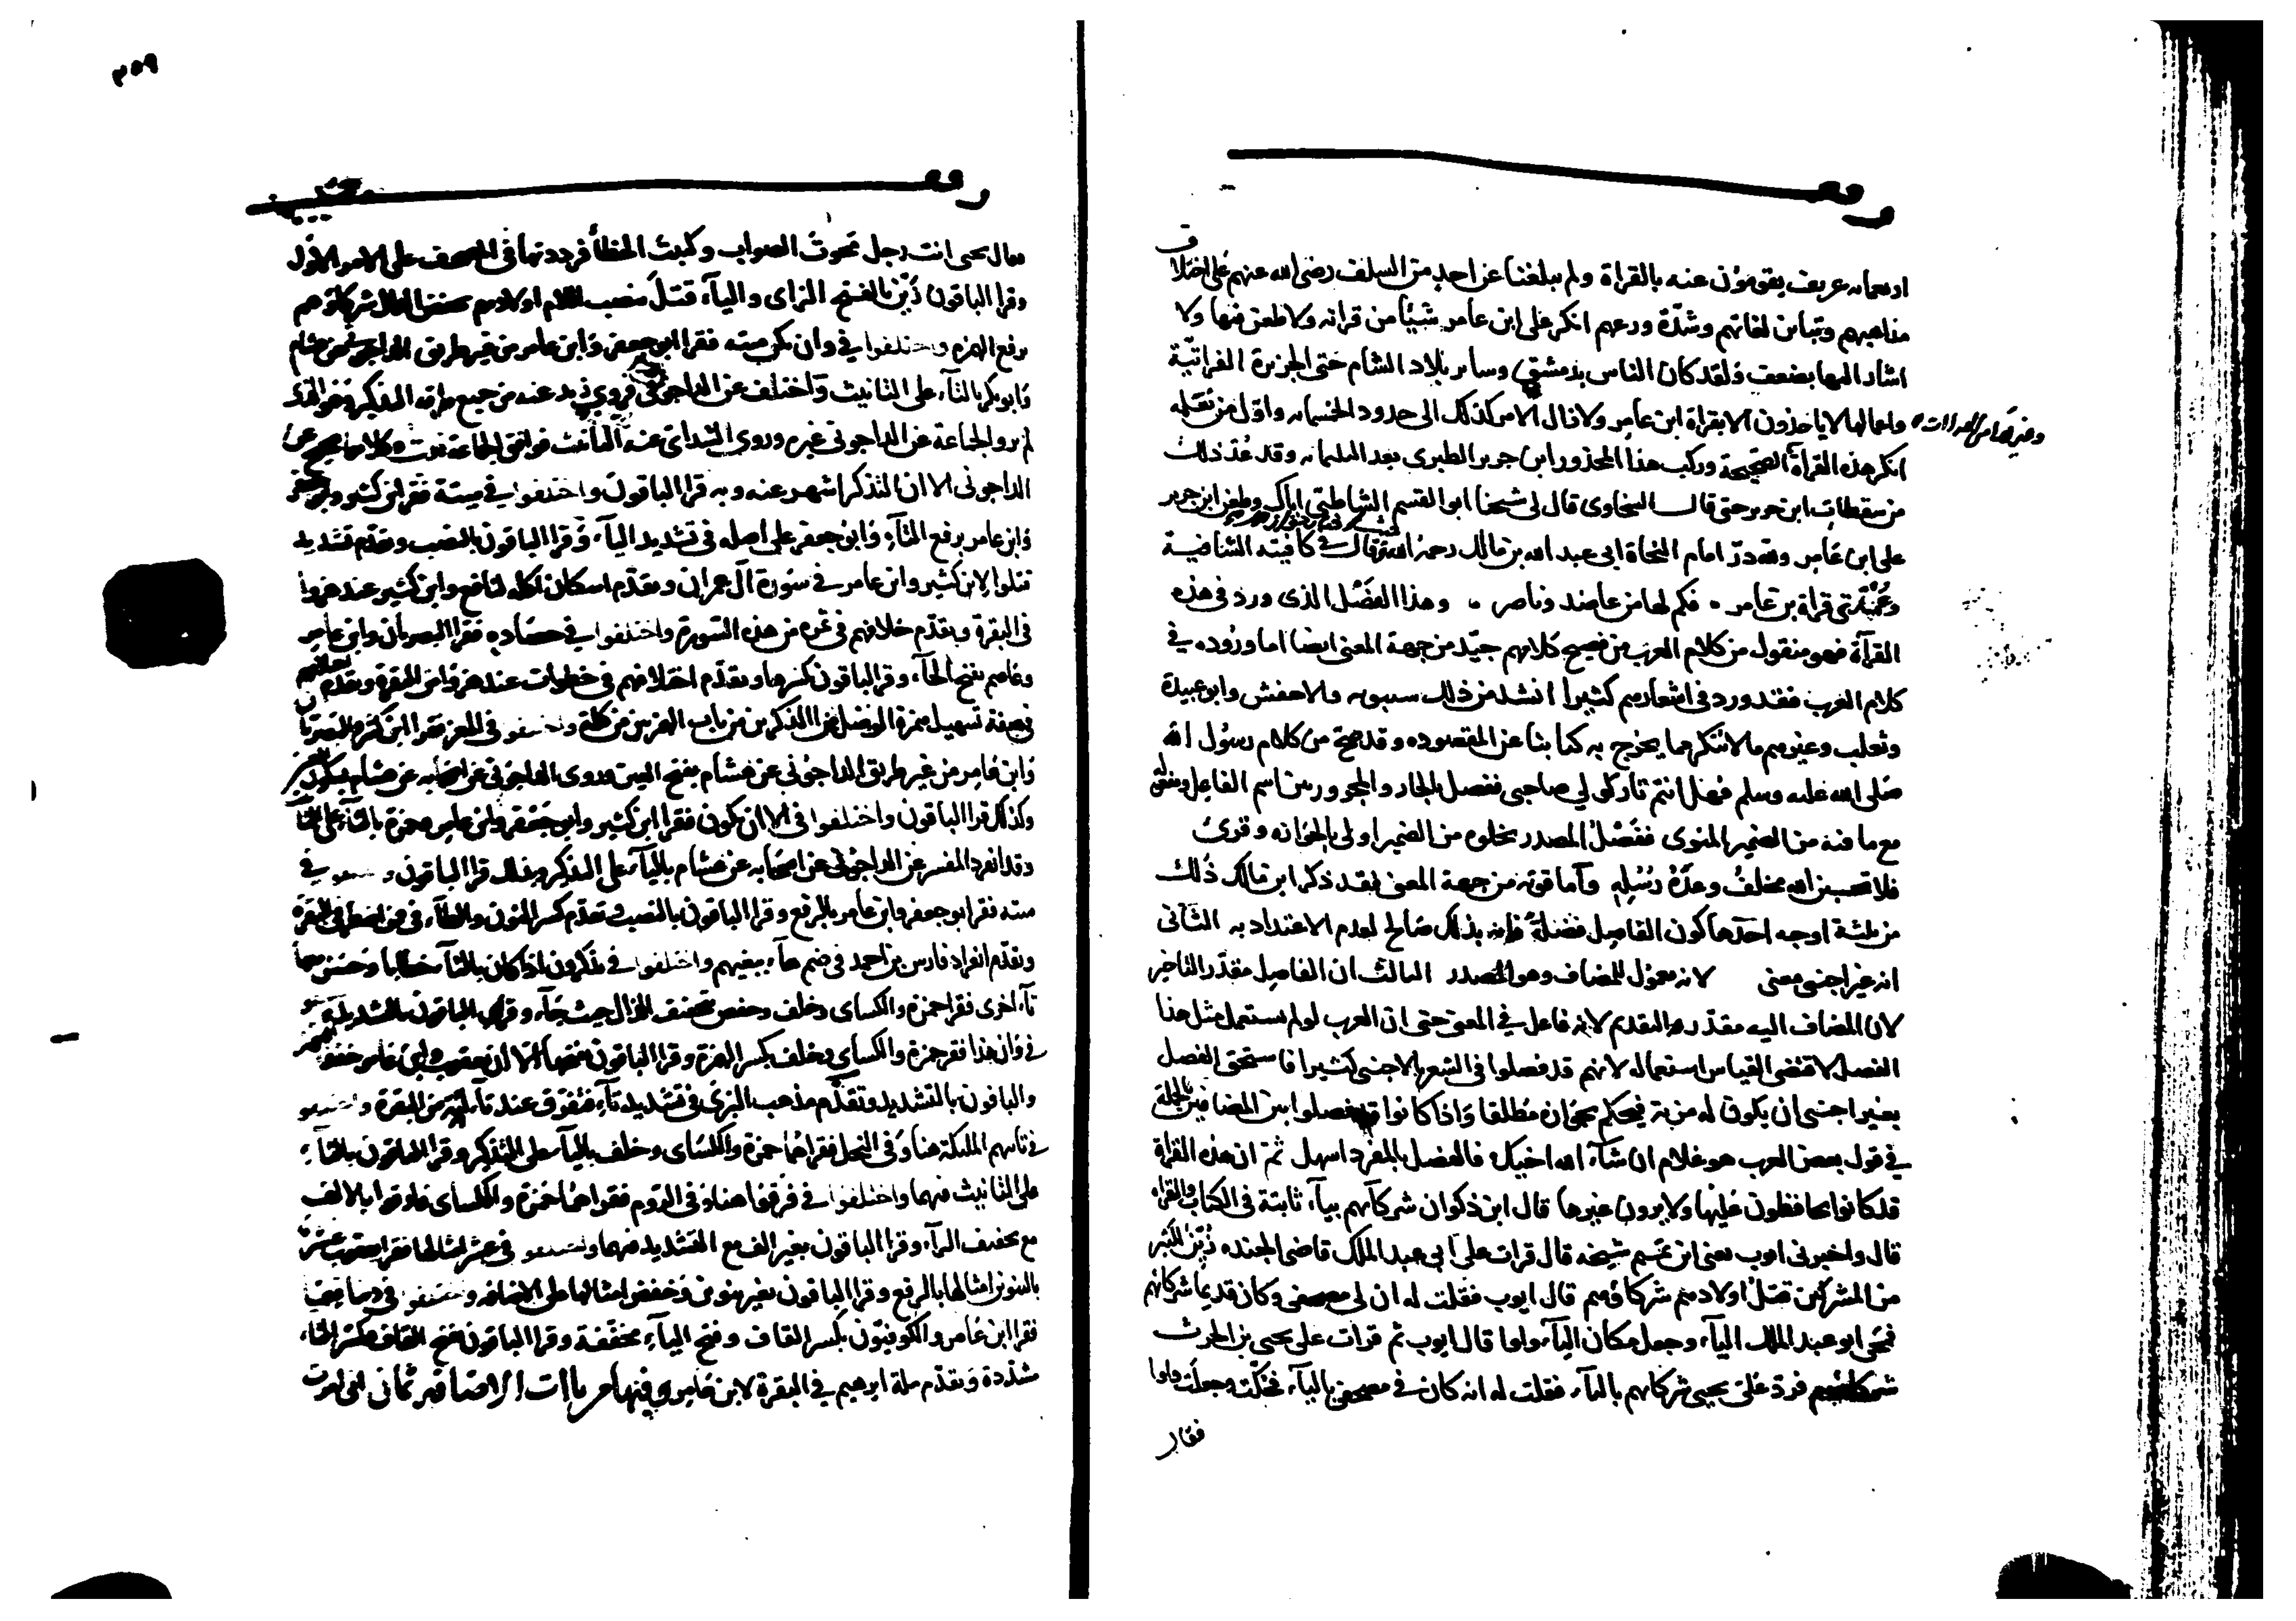 اربعمائة عريف يقومون عنه بالقراءة ولم يبلغنا عن احد من السلف رضى الله عنهم على اختلاف
مذاهبهم وتباين لغاتهم وشدة ورعهم انكر على ابن عامر شيئا من قراته ولا طعن فيها ولا
اشار اليها بضعف ولقد كان الناس بدمشق وساير بلاد الشام حتى الجزيرة الفراتية
واعمالها لا ياخذون الا بقراة ابن عامر ولا زال الامر كذلك الى حدود الخمسمائة واول من نعلمه
انكر هذه القراة الصحيحة وركب هذا المحذور ابن جرير الطبرى بعد الثلثمائة وقد عد ذلك
من سقطات ابن جرير حتى قال السخاوى قال لى شيخنا ابو القسم الشاطبى اياك وطعن ابن جرير
على ابن عامر ولله در امام النحاة ابى عبد الله بن مالك رحمه الله حيث قال فى كافيته الشافية
وعمدتى قراة بن عامر ۰ فكم لها من عاضد وناصر ۰ وهذا الفصل الذى ورد فى هذه
القرآة فهو منقول من كلام العرب من فصيح كلامهم جيد من جهة المعنى ايضا اما وروده فى
كلام العرب فقد ورد فى اشعارهم كثيرا انشد من ذلك سيبويه والاخفش وابو عبيدة
وثعلب وغيرهم ما لا ينكر مما يخرج به كتابنا عن المقصود وقد صح من كلام رسول الله
صلى الله عليه وسلم فهل انتم تاركو لى صاحبى ففصل بالجار والمجرور بين اسم الفاعل ومفعوله
مع ما فيه من الضمير المنوى ففصل المصدر بخلوه من الضمير اولى بالجواز وقرئ
فلا تحسبن الله مخلف وعده رسله وآما قوته من جهة المعنى فقد ذكر ابن مالك ذلك
من ثلثة اوجه احدها كون الفاصل فضلة فانه بذلك صالح لعدم الاعتداد به الثانى
انه غير اجنبى معنى لانه معمول للمضاف وهو المصدر الثالث ان الفاصل مقدر التاخير
لان المضاف اليه مقدر التقديم لانه فاعل فى المعنى حتى ان العرب لو لم تستعمل مثل هذا
الفصل لاقتضى القياس استعماله لانهم قد فصلوا فى الشعر بالاجنبى كثيرا فاستحق الفصل
بغير اجنبى ان يكون له مزية فيحكم بجوازه مطلقا واذا كانوا قد فصلوا بين المضافين بالجملة
فى قول بعض العرب هو غلام ان شآء الله اخيك فالفصل بالمفرد اسهل ثم ان هذه القراة
قد كانوا يحافظون عليها ولا يرون غيرها قال ابن ذكوان شركآئهم بيآء ثابتة فى الكتاب والقراة
قال واخبرنى ايوب يعنى ابن تميم شيخه قال قرات على ابى عبد الملك قاضى الجند زين لكثير
من المشركين قتل اولادهم شركاؤهم قال ايوب فقلت له ان لى مصحفى وكان قديما شركائهم
فمحى ابو عبد الملك اليآء وجعل مكان اليآء واوا قال ايوب ثم قرات على يحيى بن الحرث
شركاؤهم فرد على يحيى شركائهم باليآء فقلت له انه كان فى مصحفى باليآء فحكت وجعلت واوا
فقال
وغيرها من القراات
٢٥٩
فقال يحيى انت رجل محوت الصواب وكتبت الخطأ فرددتها فى المصحف على الامر الاول
وقرا الباقون زين بالفتح الزاى واليآء قتل بنصب اللام اولادهم بخفض الدال شركاؤهم
برفع الهمزة واختلفوا فى وان يكن ميتة فقرا ابو جعفر وابن عامر من غير طريق الداجونى عن هشام
وابو بكر بالتآء على التانيث واختلف عن الداجونى فروى زيد عنه من جميع طرقه التذكير وهو الذى
لم يرو الجماعة عن الداجونى غيره وروى الشذائى عنه التانيث فوافق الجماعة قلت وكلاهما صحيح عن
الداجونى الا ان التذكير اشهر عنه وبه قرا الباقون واختلفوا فى ميتة فقرا ابن كثير وابو جعفر
وابن عامر برفع التآء وابو جعفر على اصله فى تشديد اليآء وقرا الباقون بالنصب وتقدم تشديد
قتلوا لابن كثير وابن عامر فى سورة آل عمران وتقدم اسكان اكله لنافع وابن كثير عند هزوا
فى البقرة وتقدم خلافهم فى ثمره من هذه السورة واختلفوا فى حصاده فقرا البصريان وابن عامر
وعاصم بفتح الحآء وقرا الباقون بكسرها وتقدم اختلافهم فى خطوات عند هزوا من البقرة وتقدم اختلافهم
فى صفة تسهيل همزة الوصل من آلذكرين من باب الهمزتين من كلمة واختلفوا فى المعز فقرا ابن كثير والبصريان
وابن عامر من غير طريق الداجونى عن هشام بفتح العين وروى الداجونى عن اصحابه عن هشام بسكون العين
وكذلك قرا الباقون واختلفوا فى الا ان يكون فقرا ابن كثير وابو جعفر وابن عامر وحمزة بالتآء على التانيث
وقد انفرد المفسر عن الداجونى عن اصحابه عن هشام باليآء على التذكير وبذلك قرا الباقون واختلفوا فى
ميتة فقرا ابو جعفر وابن عامر بالرفع وقرا الباقون بالنصب وتقدم كسر النون والطآء فى فمن اضطر فى البقرة
وتقدم انفراد فارس بن احمد فى ضم هآء ببغيهم واختلفوا فى تذكرون اذا كان بالتآء خطابا وحسن معها
تآء اخرى فقرا حمزة والكسائى وخلف وحفص بتخفيف الذال حيث جآء وقرا الباقون بالتشديد واختلفوا
فى وان هذا فقرا حمزة والكسائى وخلف بكسر الهمزة وقرا الباقون بفتحها الا ان يعقوب وابن عامر خففا النون
والباقون بالتشديد وتقدم مذهب البزى فى تشديد تآء فتفرق عند تآءاته من البقرة واختلفوا
فى تاتيهم الملئكة هنا وفى النحل فقراهما حمزة والكسائى وخلف باليآء على التذكير وقرا الباقون بالتآء
على التانيث فيهما واختلفوا فى فرقوا هنا وفى الروم فقراهما حمزة والكسائى فارقوا بالالف
مع تخفيف الرآء وقرا الباقون بغير الف مع التشديد فيهما واختلفوا فى عشر امثالها فقرا يعقوب عشر
بالتنوين امثالها بالرفع وقرا الباقون بغير تنوين وخفض امثالها على الاضافة واختلفوا فى دينا قيما
فقرا ابن عامر والكوفيون بكسر القاف وفتح اليآء مخففة وقرا الباقون بفتح القاف وكسر اليآء
مشددة وتقدم ملة ابرهيم فى البقرة لابن عامر وفيها من ياات الاضافه ثمان